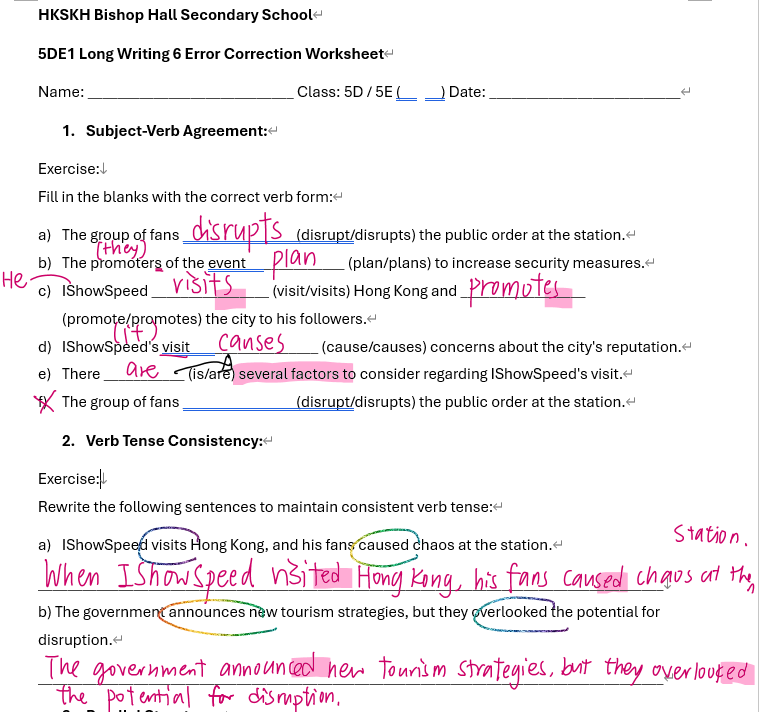 HKSKH Bishop Hall Secondary School
5DE1 Long Writing 6 Error Correction Worksheet
Name: ________________________ Class: 5D / 5E (__ __) Date: ______________________
1. Subject-Verb Agreement:
Exercise:
Fill in the blanks with the correct verb form:
a) The group of fans disrupts (disrupt/disrupts) the public order at the station.
(they)
b) The promoters of the event plan (plan/plans) to increase security measures.
He
c) IShowSpeed visits (visit/visits) Hong Kong and promotes
(promote/promotes) the city to his followers.
(it)
d) IShowSpeed's visit causes (cause/causes) concerns about the city's reputation.
e) There are (is/are) several factors to consider regarding IShowSpeed's visit.
f) The group of fans ____________ (disrupt/disrupts) the public order at the station.
2. Verb Tense Consistency:
Exercise:
Rewrite the following sentences to maintain consistent verb tense:
a) IShowSpeed visits Hong Kong, and his fans caused chaos at the station.
When IShowSpeed visited Hong Kong, his fans caused chaos at the station.
b) The government announces new tourism strategies, but they overlooked the potential for
disruption.
The government announced new tourism strategies, but they overlooked
the potential for disruption.